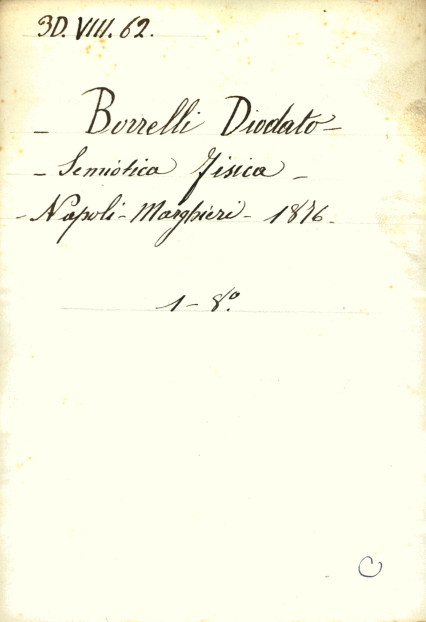 3D. VIII. 62.
- Borrelli Diodato -
- Semiotica Fisica -
- Napoli - Marghieri - 1876 -
1 - 8º.
C